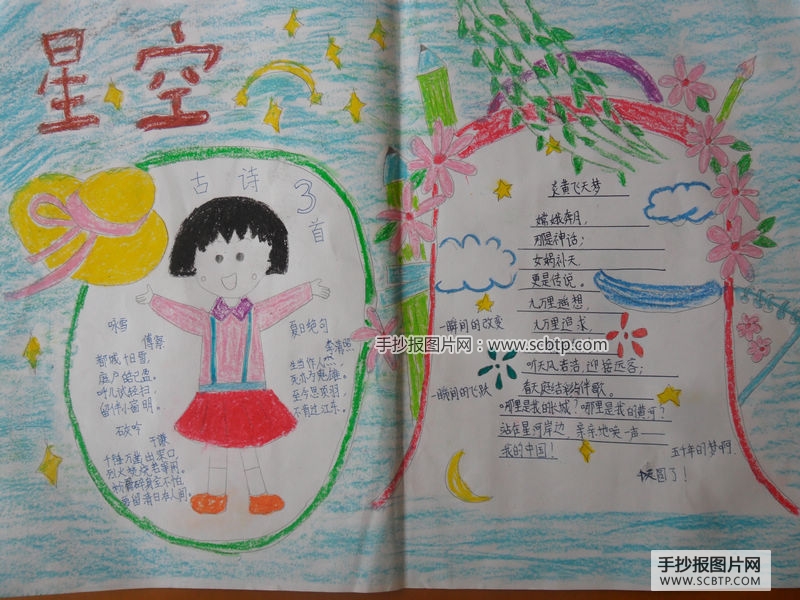 星空
古诗3首
咏雪
傅察
都城十日雪，
庭户皓已盈。
呼儿试轻扫，
留伴小窗明。
石灰吟
于谦
千锤万凿出深山
烈火焚烧若等闲。
粉骨碎身全不怕
要留清白在人间。
夏日绝句
李清照
生当作人杰，
死亦为鬼雄。
至今思项羽，
不肯过江东。
炎黄飞天梦
嫦娥奔月，
那是神话；
女娲补天，
更是传说。
九万里遥想，
九万里追求，
一瞬间的改变
一瞬间的飞跃
听天风若浩，迎接远客；
春天庭结彩伴歌。
哪里是我的长城？哪里是我的黄河？
站在星河岸边，亲亲地喊一声——
我的中国！
五千年的梦啊，
圆了！
手抄报图片网：www.scbtp.com
手抄报图片网
www.scbtp.com
手抄报图片网
WWW.SCBTP.COM